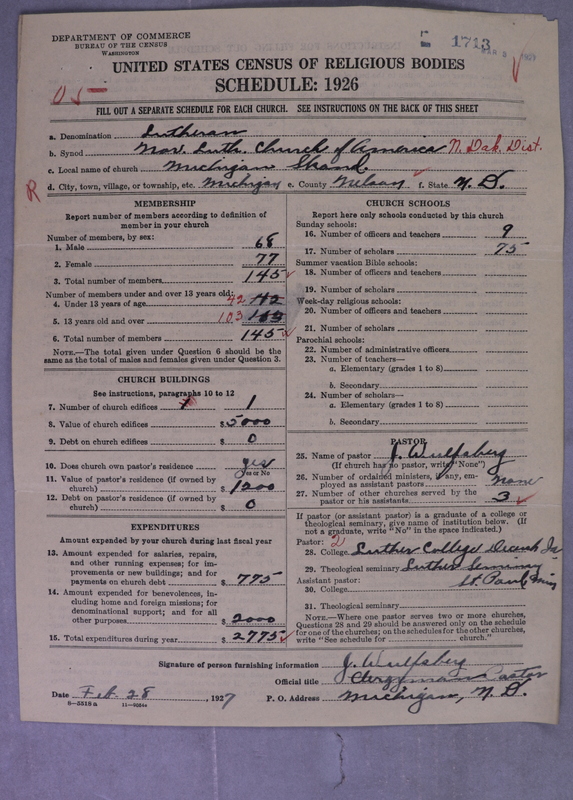 DEPARTMENT OF COMMERCE
BUREAU OF THE CENSUS
WASHINGTON
1713
MAR 5 1927
UNITED STATES CENSUS OF RELIGIOUS BODIES
SCHEDULE: 1926
05-
FILL OUT A SEPARATE SCHEDULE FOR EACH CHURCH. SEE INSTRUCTIONS ON THE BACK OF THIS SHEET
a. Denomination Lutheran
b. Synod Nor. Luth. Church of America N. Dak. Dist.
c. Local name of church Michigan
R
d. City, town, village, or township, etc. Michigan e. County Nelson f. State N. D.
MEMBERSHIP
Report number of members according to definition of
member in your church
Number of members, by sex:
1. Male 68
2. Female 77
3. Total number of members 145
Number of members under and over 13 years old:
4. Under 13 years of age 42 42
5. 13 years old and over 103 103
6. Total number of members 145
NOTE.—The total given under Question 6 should be the
same as the total of males and females given under Question 3.
CHURCH BUILDINGS
See instructions, paragraphs 10 to 12
7. Number of church edifices 1 1
8. Value of church edifices $5000
9. Debt on church edifices $ 0
10. Does church own pastor's residence yes
Yes or No
11. Value of pastor's residence (if owned by
church) $ 1200
12. Debt on pastor's residence (if owned by
church) $ 0
EXPENDITURES
Amount expended by your church during last fiscal year
13. Amount expended for salaries, repairs,
and other running expenses; for im-
provements or new buildings; and for
payments on church debt $ 775
14. Amount expended for benevolences, in-
cluding home and foreign missions; for
denominational support; and for all
other purposes $ 2000
15. Total expenditures during year $ 2775
CHURCH SCHOOLS
Report here only schools conducted by this church
Sunday schools:
16. Number of officers and teachers 9
17. Number of scholars 75
Summer vacation Bible schools:
18. Number of officers and teachers
19. Number of scholars
Week-day religious schools:
20. Number of officers and teachers
21. Number of scholars
Parochial schools:
22. Number of administrative officers
23. Number of teachers—
a. Elementary (grades 1 to 8)
b. Secondary
24. Number of scholars—
a. Elementary (grades 1 to 8)
b. Secondary
PASTOR
25. Name of pastor J. Wulfsberg
(If church has no pastor, write "None")
26. Number of ordained ministers, if any, em-
ployed as assistant pastors none
27. Number of other churches served by the
pastor or his assistants 3
If pastor (or assistant pastor) is a graduate of a college or
theological seminary, give name of institution below. (If
not a graduate, write "No" in the space indicated.)
Pastor: 2
28. College Luther College Decorah Ia
29. Theological seminary Luther Seminary
Assistant pastor: St. Paul Minn
30. College
31. Theological seminary
NOTE.—Where one pastor serves two or more churches,
Questions 28 and 29 should be answered only on the schedule
for one of the churches; on the schedules for the other churches,
write "See schedule for church."
Signature of person furnishing information J. Wulfsberg
Official title Clergyman Pastor
Date Feb. 28, 1927 P. O. Address Michigan, N. D.
8—2318 a